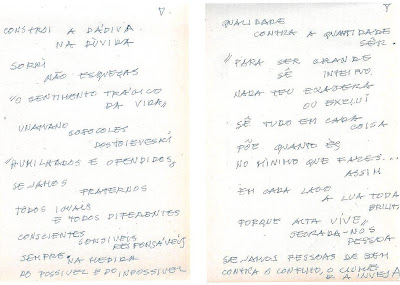 V.
CONSTROI A DÁDIVA
NA DÚVIDA
SORRI
NÃO ESQUEÇAS
"O SENTIMENTO TRÁGICO
DA VIDA"
UNAMUNO
SOFOCLES
DOSTOIEVESKI
"HUMILHADOS E OFENDIDOS"
SEJAMOS FRATERNOS
TODOS IGUAIS
E TODOS DIFERENTES
CONSCIENTES
SENSIVEIS
RESPONSÁVEIS
SEMPRE NA MEDIDA
DO POSSIVEL E DO IMPOSSIVEL
QUALIDADE
CONTRA A QUANTIDADE
SÊR.
"PARA SER GRANDE
SÊ INTEIRO,
NADA TEU EXAGERA
OU EXCLUI
SÊ TUDO EM CADA
COISA
PÕE QUANTO ÉS
NO MINIMO QUE FAZES...
ASSIM
EM CADA LAGO
A LUA TODA
BRILHA
PORQUE ALTA VIVE"
SEGREDA-NOS
PESSOA
SEJAMOS PESSOAS DE BEM
CONTRA O CONFLITO, O CIUME
E A INVEJA